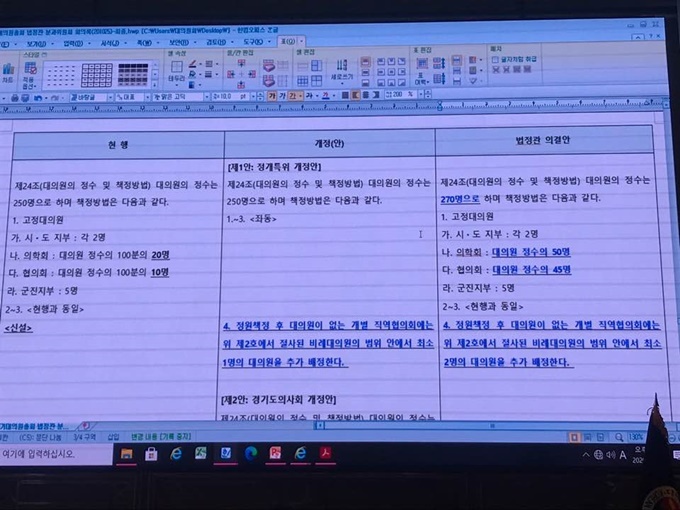 현 행
개정(안)
법정관 의결안
제24조(대의원의 정수 및 책정방법) 대의원의 정수는
250명으로 하며 책정방법은 다음과 같다.
1. 고정대의원
가. 시・도 지부 : 각 2명
나. 의학회 : 대의원 정수의 100분의 20명
다. 협의회 : 대의원 정수의 100분의 10명
라. 군진지부 : 5명
2~3. <현행과 동일>
<신설>
[제1안: 정개특위 개정안]
제24조(대의원의 정수 및 책정방법) 대의원의 정수는
250명으로 하며 책정방법은 다음과 같다.
1.~3. <좌동>
4. 정원책정 후 대의원이 없는 개별 직역협의회에는
위 제2호에서 절사된 비례대의원의 범위 안에서 최소
1명의 대의원을 추가 배정한다.
[제2안: 경기도의사회 개정안]
제24조(대의원의 정수 및 책정방법) 대의원의 정수는
제24조(대의원의 정수 및 책정방법) 대의원의 정수는
270명으로 하며 책정방법은 다음과 같다.
1. 고정대의원
가. 시・도 지부 : 각 2명
나. 의학회 : 대의원 정수의 50명
다. 협의회 : 대의원 정수의 45명
라. 군진지부 : 5명
2~3. <현행과 동일>
4. 정원책정 후 대의원이 없는 개별 직역협의회에는
위 제2호에서 절사된 비례대의원의 범위 안에서 최소
2명의 대의원을 추가 배정한다.
3/4 구역 삽입 변경 내용 [기록 중지]
130%
여기에 입력하십시오.